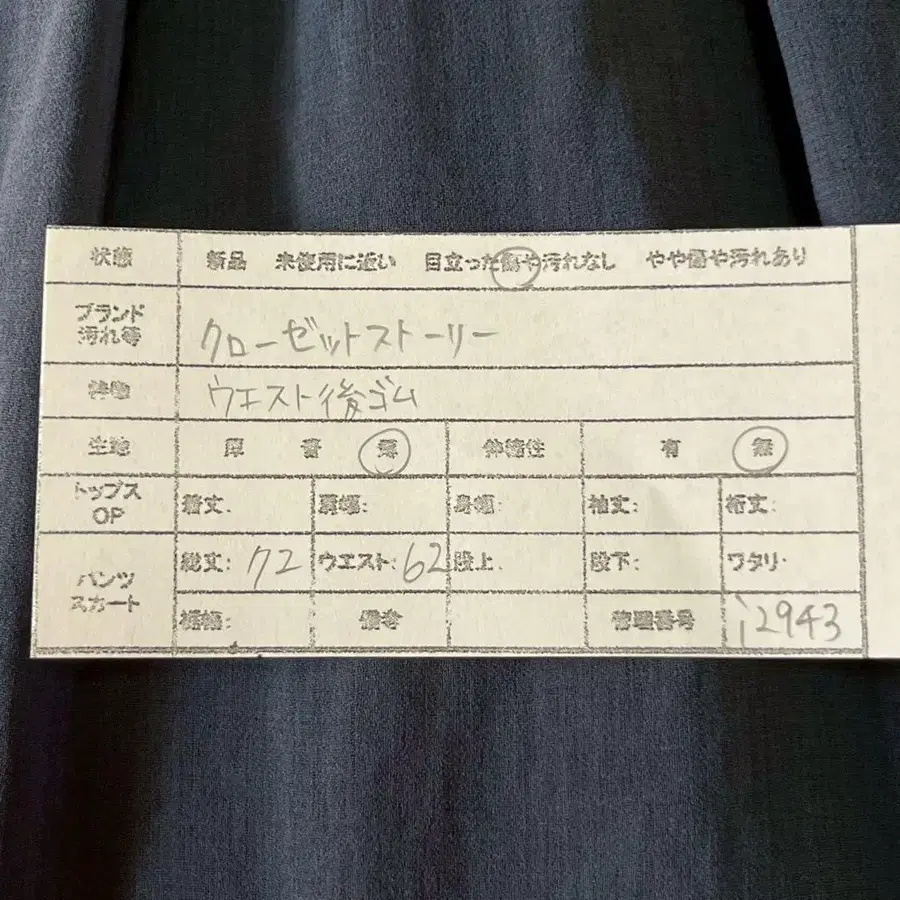 状態 新品 未使用に近い 目立った傷や汚れなし やや傷や汚れあり
ブランド
汚れ等 クローゼットストーリー
ウエスト後ゴム
生地 厚 普 薄 伸縮性 有 無
トップス
OP 着丈: 肩幅: 身幅: 袖丈: 裄丈:
パンツ
スカート 総丈: 72 ウエスト: 62 股上: 股下: ワタリ:
裾幅: 備考 管理番号 i2943